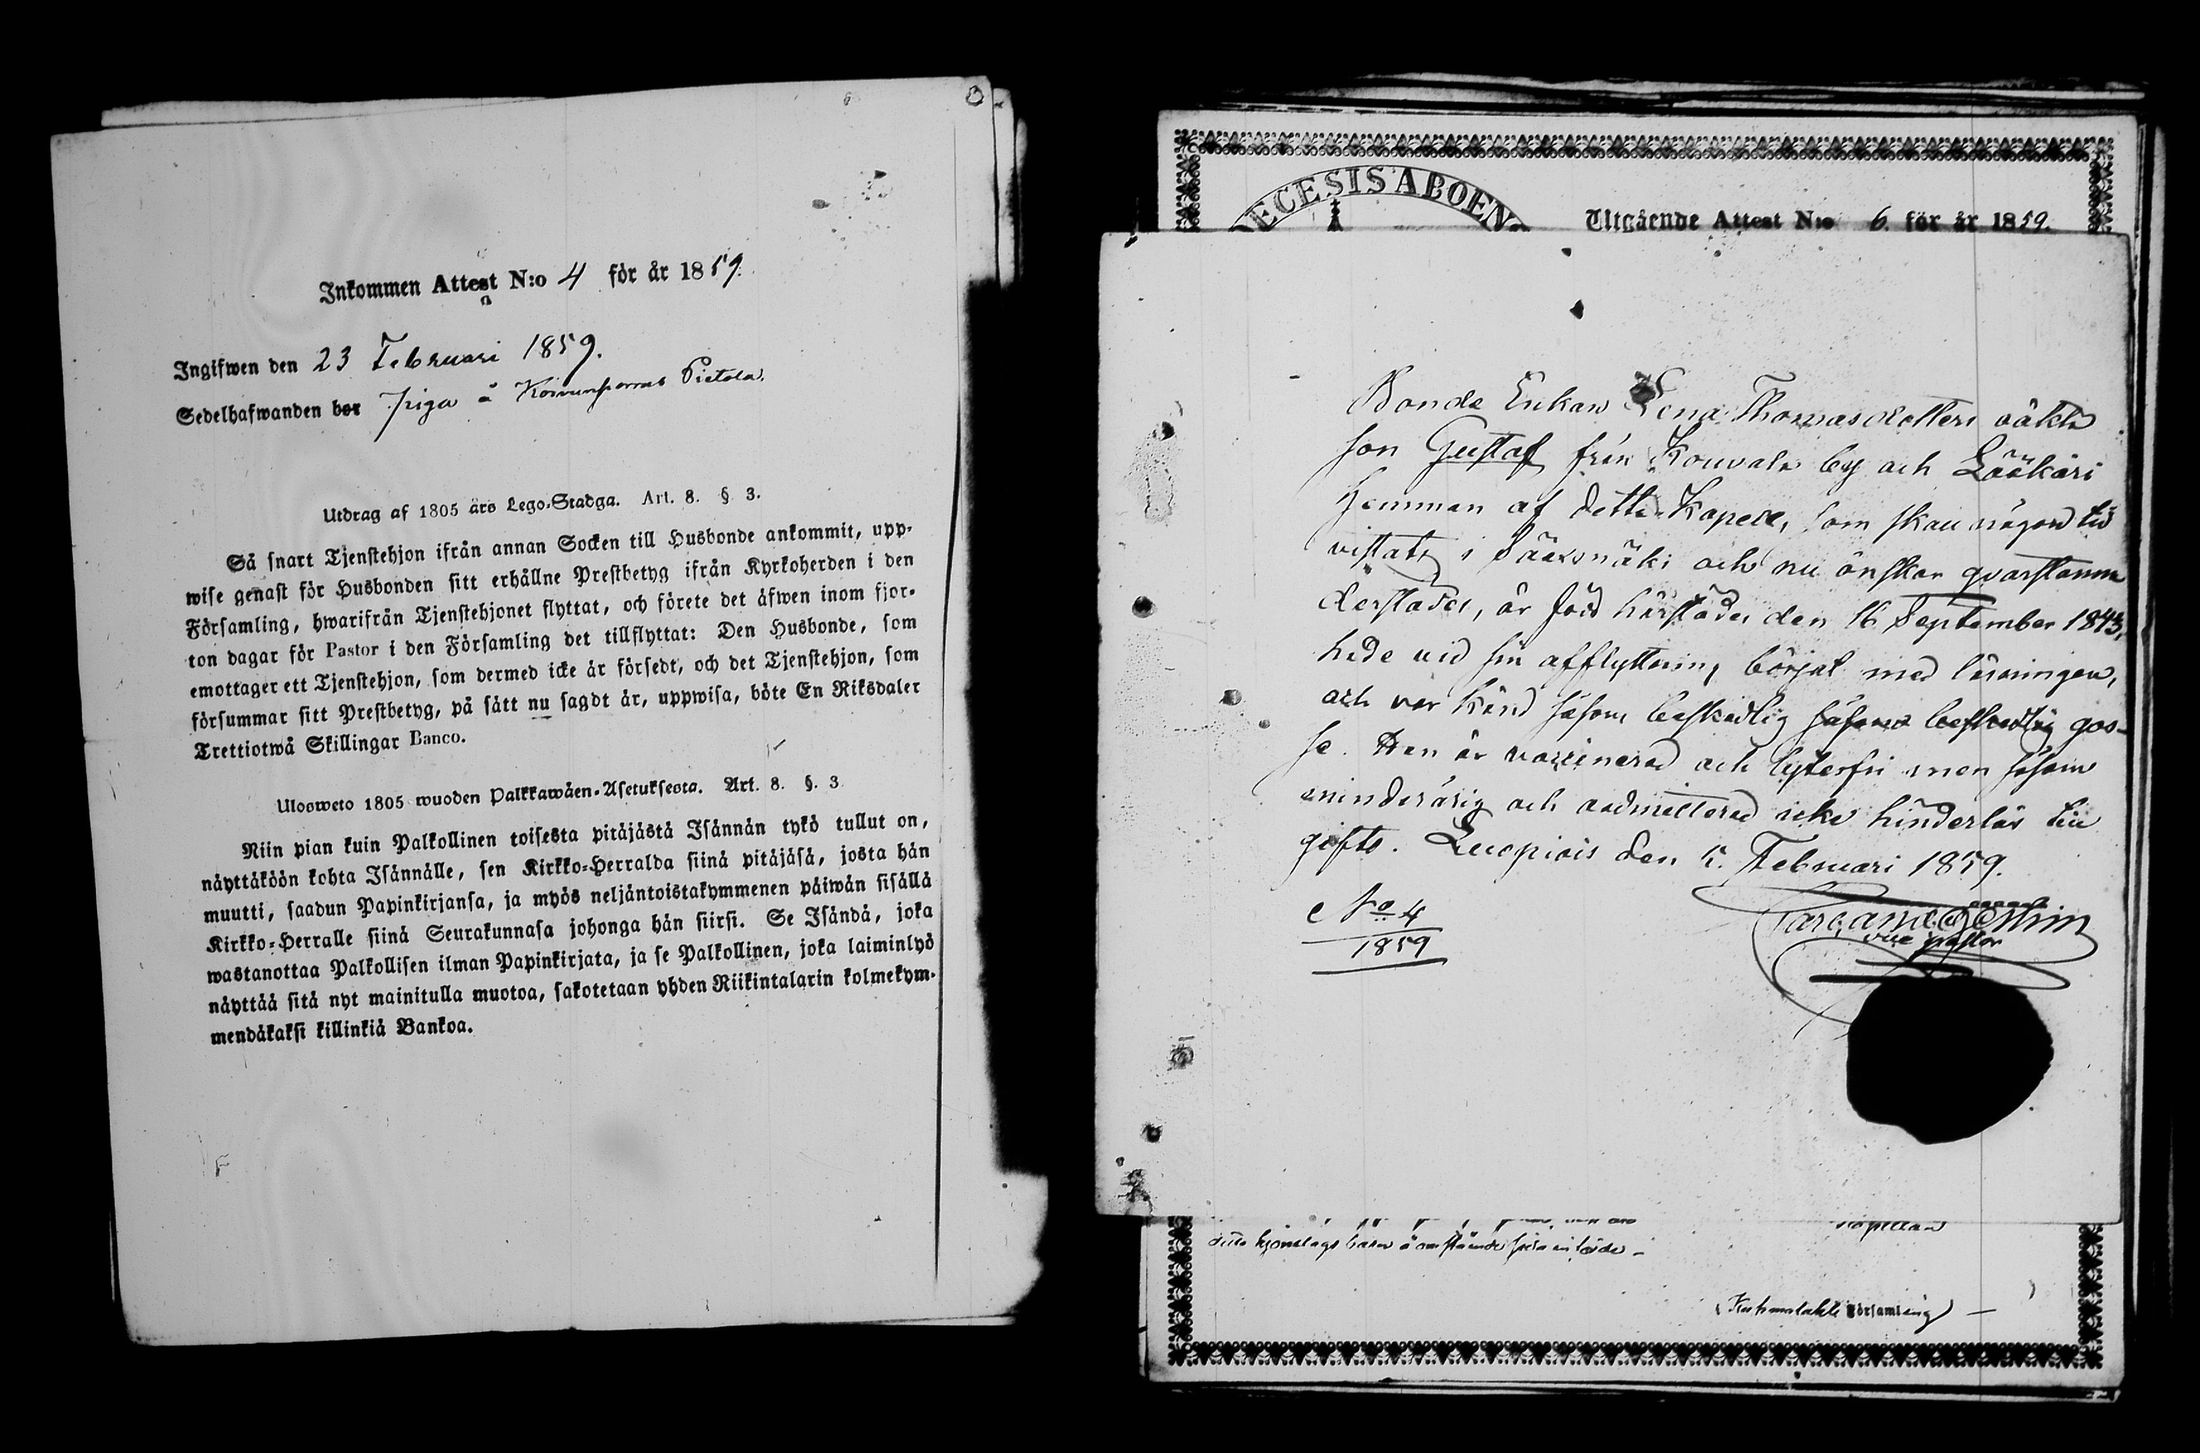 Inkommen Attest N:o 4 för år 1859.
Ingifwen den 23 Februari 1859.
Sedelhafwanden bor piga å Pietola.
Utdrag af 1805 års Lego-Stadga. Art. 8. § 3.
Så snart Tjenstehjon ifrån annan Socken till Husbonde ankommit, upp-
wise genast för Husbonden sitt erhållne Prestbetyg ifrån Kyrkoherden i den
Församling, hwarifrån Tjenstehjonet flyttat, och förete det äfwen inom fjor-
ton dagar för Pastor i den Församling det tillflyttat: Den Husbonde, som
emottager ett Tjenstehjon, som dermed icke är försedt, och det Tjenstehjon, som
försummar sitt Prestbetyg, på sätt nu sagdt är, uppwisa, böte En Riksdaler
Trettiotwå Skillingar Banco.
Ulosweto 1805 wuoden Palkkawäen-Asetuksesta. Art. 8. §. 3
Niin pian kuin Palkollinen toisesta pitäjästä Isännän tykö tullut on,
näyttäköön kohta Isännälle, sen Kirkko-Herralda siinä pitäjäsä, josta hän
muutti, saadun Papinkirjansa, ja myös neljäntoistakymmenen päiwän sisällä
Kirkko-Herralle siinä Seurakunnasa johonga hän siirsi. Se Isändä, joka
wastanottaa Palkollisen ilman Papinkirjata, ja se Palkollinen, joka laiminlyö
näyttää sitä nyt mainitulla muotoa, sakotetaan yhden Riikintalarin kolmekym-
mendäkaksi killinkiä Bankoa.
ECESIS ABOEN
Utgående Attest N:o 6 för år 1859.
Bonde Enkan Lena Thomasdotters oäkta
son Gustaf från Kouvala by och Lääkäri
hemman af detta Kapell, som skall någon tid
vistats i Sääksmäki och nu önskar qvarstanna
derstädes, är född härstädes den 16 September 1843,
hade vid sin afflyttning börjat med läsningen,
och var känd såsom beskedlig såsom beskedlig gos-
se. Han är vaccinerad och lytesfri men såsom
minderårig och oadmitterad icke hinderlös till
gifte. Luopiois den 5. Februari 1859.
vice pastor
No 4
1859
Kapellan
(Kuhmalahti Församling)